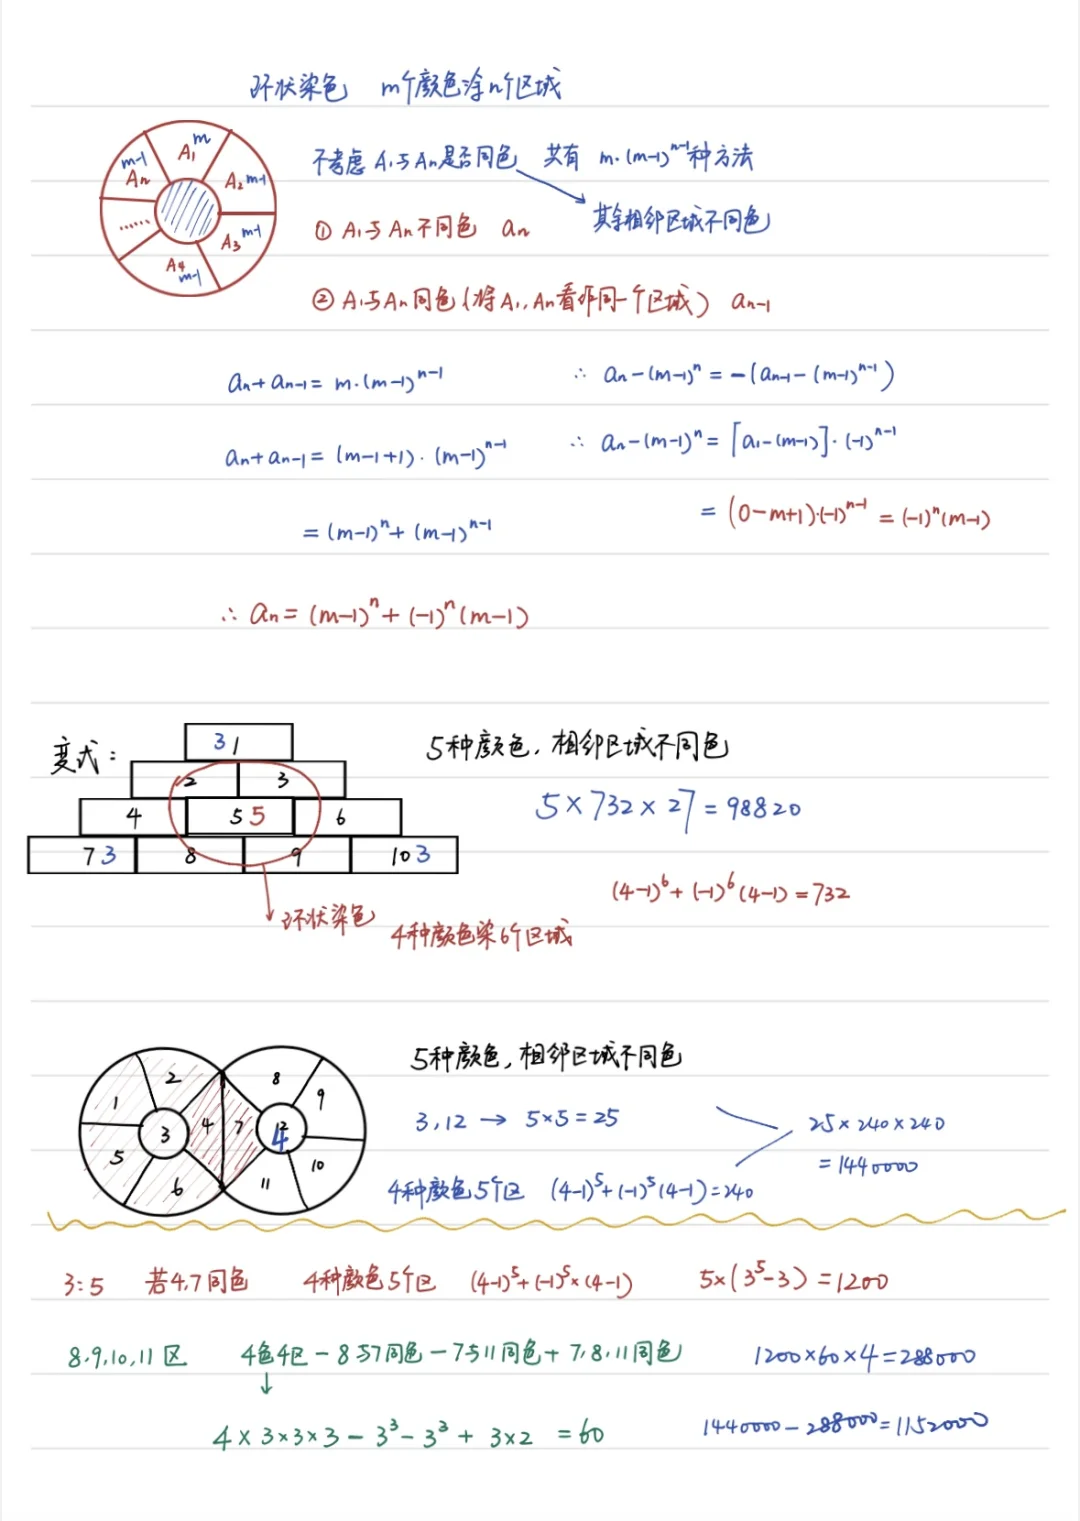 环状染色 m个颜色涂n个区域
A₁ m
m-1
Aₙ
A₂ m-1
A₃ m-1
A₄ m-1
……
不考虑A₁与Aₙ是否同色 共有 m·(m-1)ⁿ⁻¹种方法
其余相邻区域不同色
① A₁与Aₙ不同色 aₙ
② A₁与Aₙ同色(将A₁,Aₙ看作同一个区域) aₙ₋₁
aₙ+aₙ₋₁= m·(m-1)ⁿ⁻¹
∴ aₙ-(m-1)ⁿ=-(aₙ₋₁-(m-1)ⁿ⁻¹)
aₙ+aₙ₋₁=(m-1+1)·(m-1)ⁿ⁻¹
∴ aₙ-(m-1)ⁿ=[a₁-(m-1)]·(-1)ⁿ⁻¹
=(m-1)ⁿ+(m-1)ⁿ⁻¹
=(0-m+1)·(-1)ⁿ⁻¹=(-1)ⁿ(m-1)
∴ aₙ=(m-1)ⁿ+(-1)ⁿ(m-1)
变式:
3 1
2 3
4 5 5 6
7 3 8 9 10 3
5种颜色,相邻区域不同色
5×732×27=98820
(4-1)⁶+(-1)⁶(4-1)=732
环状染色
4种颜色染6个区域
1 2 3 4 5 6 7 8 9 10 11 12 4
5种颜色,相邻区域不同色
3,12 → 5×5=25
25×240×240
=1440000
4种颜色5个区 (4-1)⁵+(-1)⁵(4-1)=240
3:5 若4,7同色 4种颜色5个区 (4-1)⁵+(-1)⁵×(4-1) 5×(3⁵-3)=1200
8,9,10,11区 4色4区-8与7同色-7与11同色+7,8,11同色 1200×60×4=288000
4×3×3×3-3³-3³+3×2=60
1440000-288000=1152000